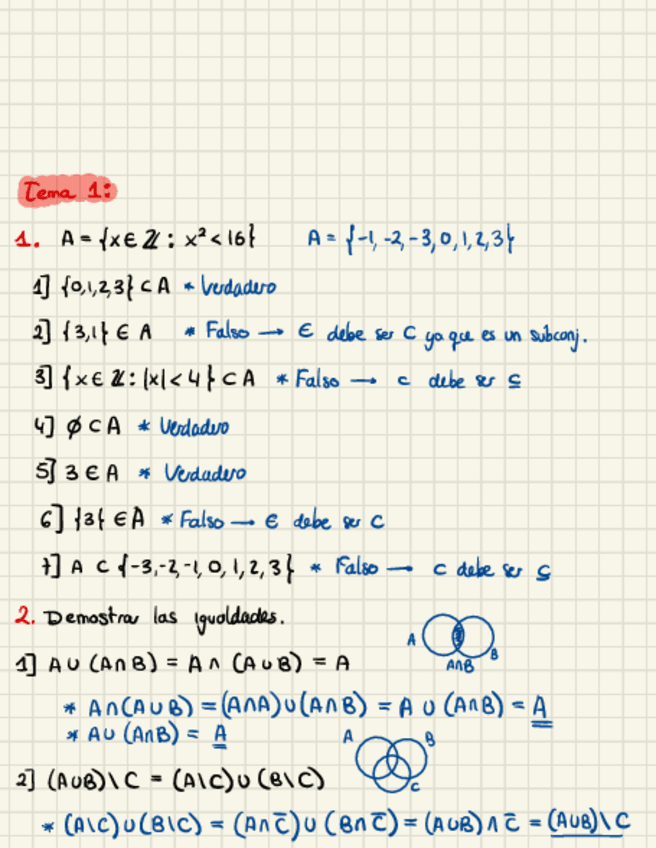 Tema 1:
1. A = {x ∈ ℤ : x² < 16} A = {-1, -2, -3, 0, 1, 2, 3}
1] {0,1,2,3} ⊂ A * Verdadero
2] {3,1} ∈ A * Falso → ∈ debe ser ⊂ ya que es un subconj.
3] {x ∈ ℤ : |x| < 4} ⊂ A * Falso → ⊂ debe ser ⊆
4] ∅ ⊂ A * Verdadero
5] 3 ∈ A * Verdadero
6] {3} ∈ A * Falso → ∈ debe ser ⊂
7] A ⊂ {-3, -2, -1, 0, 1, 2, 3} * Falso → ⊂ debe ser ⊆
2. Demostrar las igualdades.
A B A∩B
1] A ∪ (A∩B) = A ∩ (A∪B) = A
* A∩(A∪B) = (A∩A)∪(A∩B) = A ∪ (A∩B) = A
* A∪ (A∩B) = A
A B C
2] (A∪B)\C = (A\C)∪(B\C)
* (A\C)∪(B\C) = (A∩C̅)∪(B∩C̅) = (A∪B)∩C̅ = (A∪B)\C